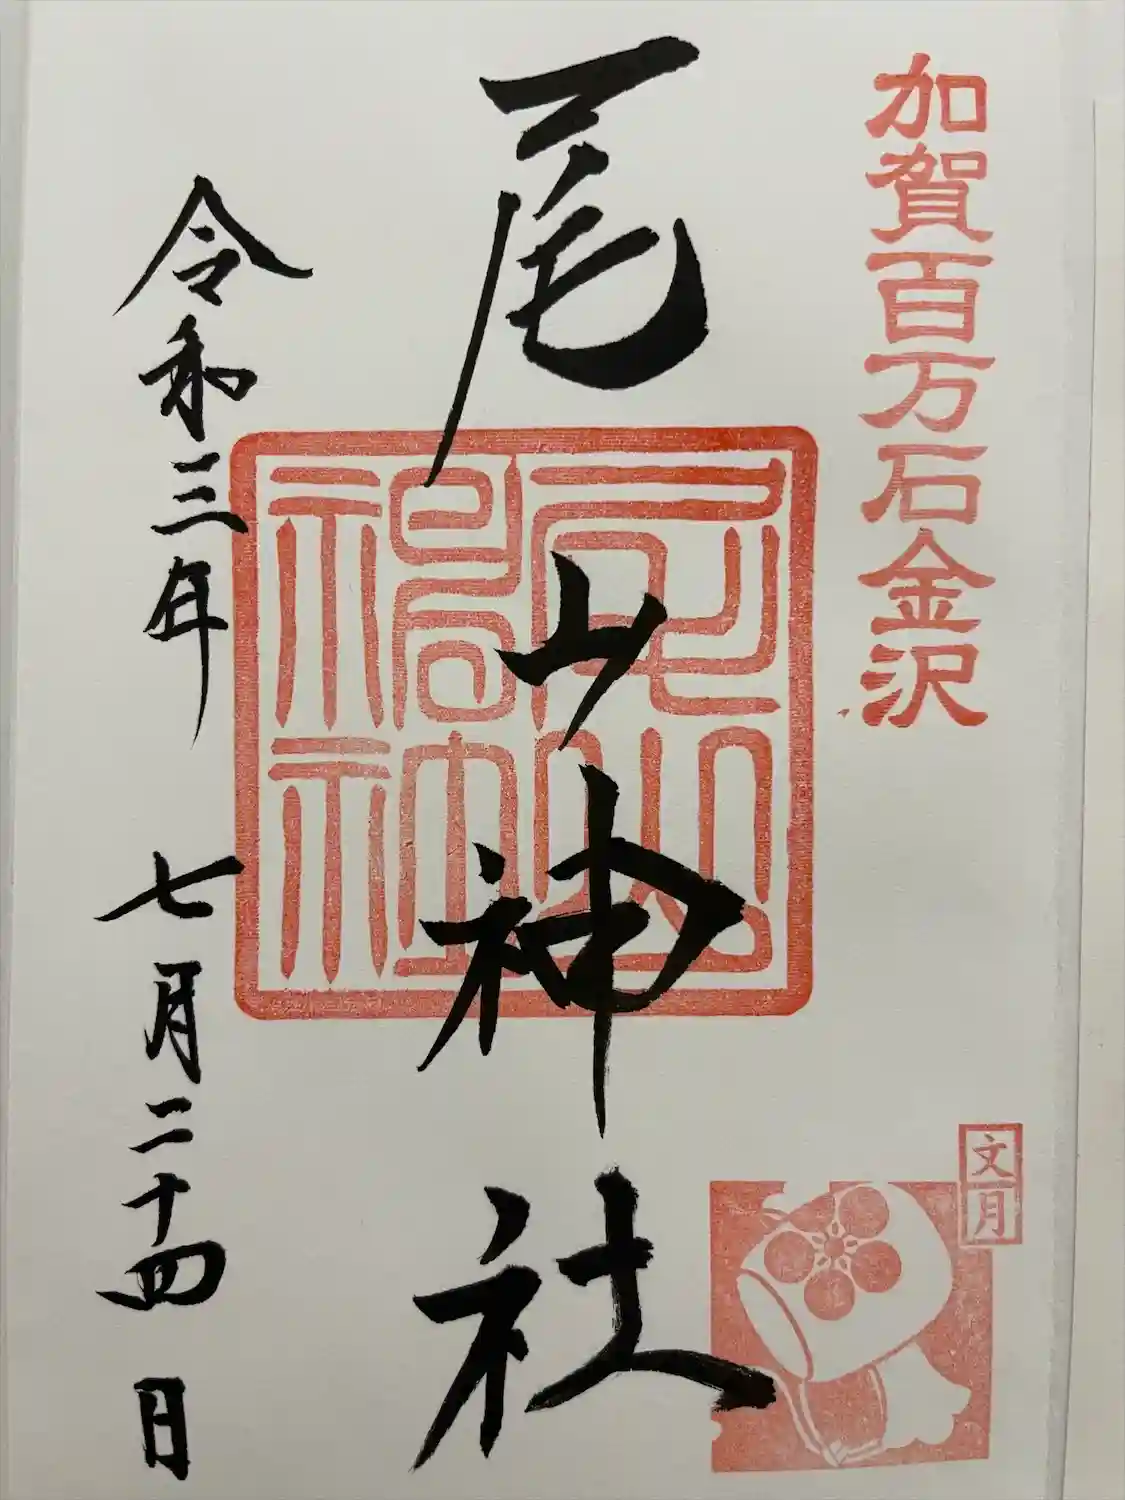 加賀百万石金沢
尾山神社
尾山神社
令和三年 七月二十四日
文月